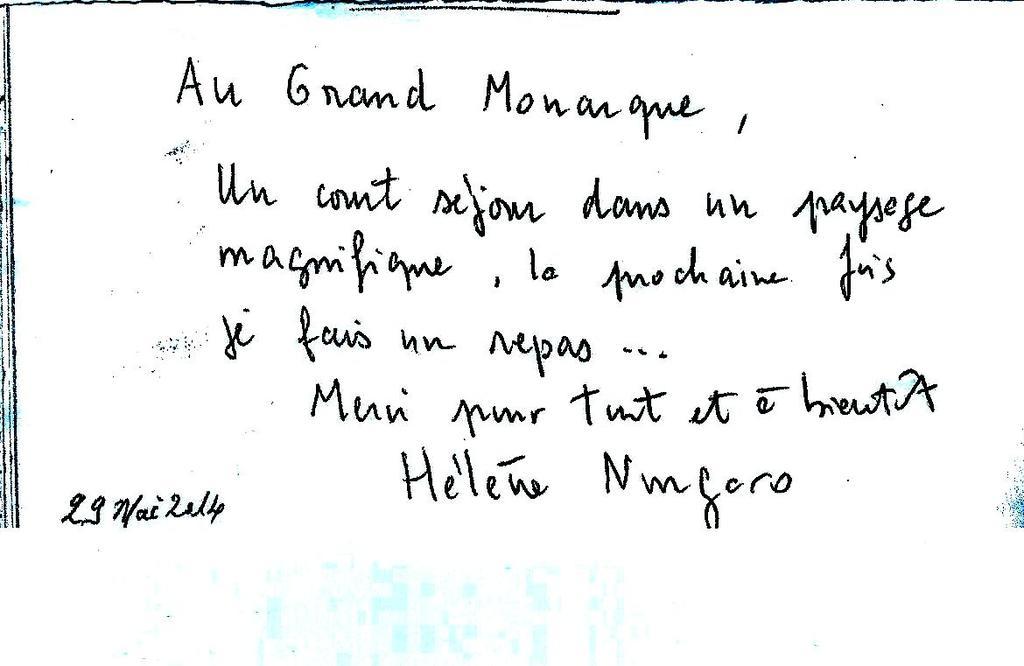 Au Grand Monarque,
Un court séjour dans un paysage
magnifique, la prochaine fois
je fais un repas ...
Merci pour tout et à bientôt
Hélène Nougaro
29 Mai 2014